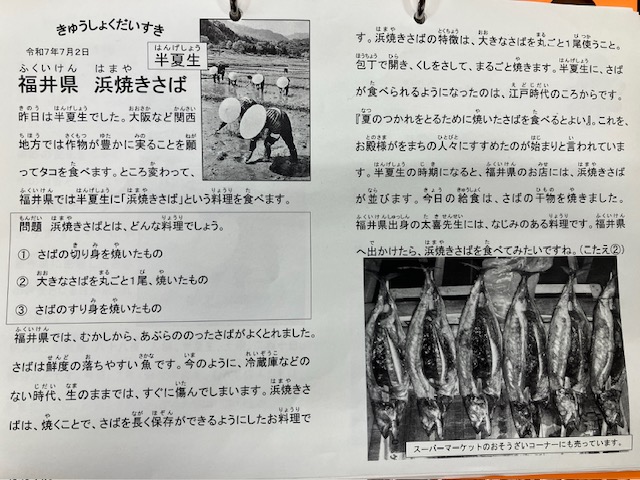 きゅうしょくだいすき
令和7年7月2日
半夏生
はんげしょう
福井県 浜焼きさば
ふくいけん はまや
昨日は半夏生でした。大阪など関西
地方では作物が豊かに実ることを願
ってタコを食べます。ところ変わって、
福井県では半夏生に「浜焼きさば」という料理を食べます。
問題 浜焼きさばとは、どんな料理でしょう。
① さばの切り身を焼いたもの
② 大きなさばを丸ごと1尾、焼いたもの
③ さばのすり身を焼いたもの
福井県では、むかしから、あぶらののったさばがよくとれました。
さばは鮮度の落ちやすい魚です。今のように、冷蔵庫などの
ない時代、生のままでは、すぐに傷んでしまいます。浜焼きさ
ばは、焼くことで、さばを長く保存ができるようにしたお料理で
す。浜焼きさばの特徴は、大きなさばを丸ごと1尾使うこと。
包丁で開き、くしをさして、まるごと焼きます。半夏生に、さば
が食べられるようになったのは、江戸時代のころからです。
『夏のつかれをとるために焼いたさばを食べるとよい』。これを、
お殿様がをまちの人々にすすめたのが始まりと言われていま
す。半夏生の時期になると、福井県のお店には、浜焼きさば
が並びます。今日の給食は、さばの干物を焼きました。
福井県出身の太喜先生には、なじみのある料理です。福井県
へ出かけたら、浜焼きさばを食べてみたいですね。(こたえ②)
スーパーマーケットのおそうざいコーナーにも売っています。